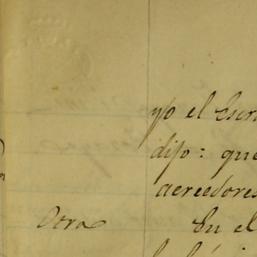 yo el Escri
dijo: que
acreedores
Otra
En el